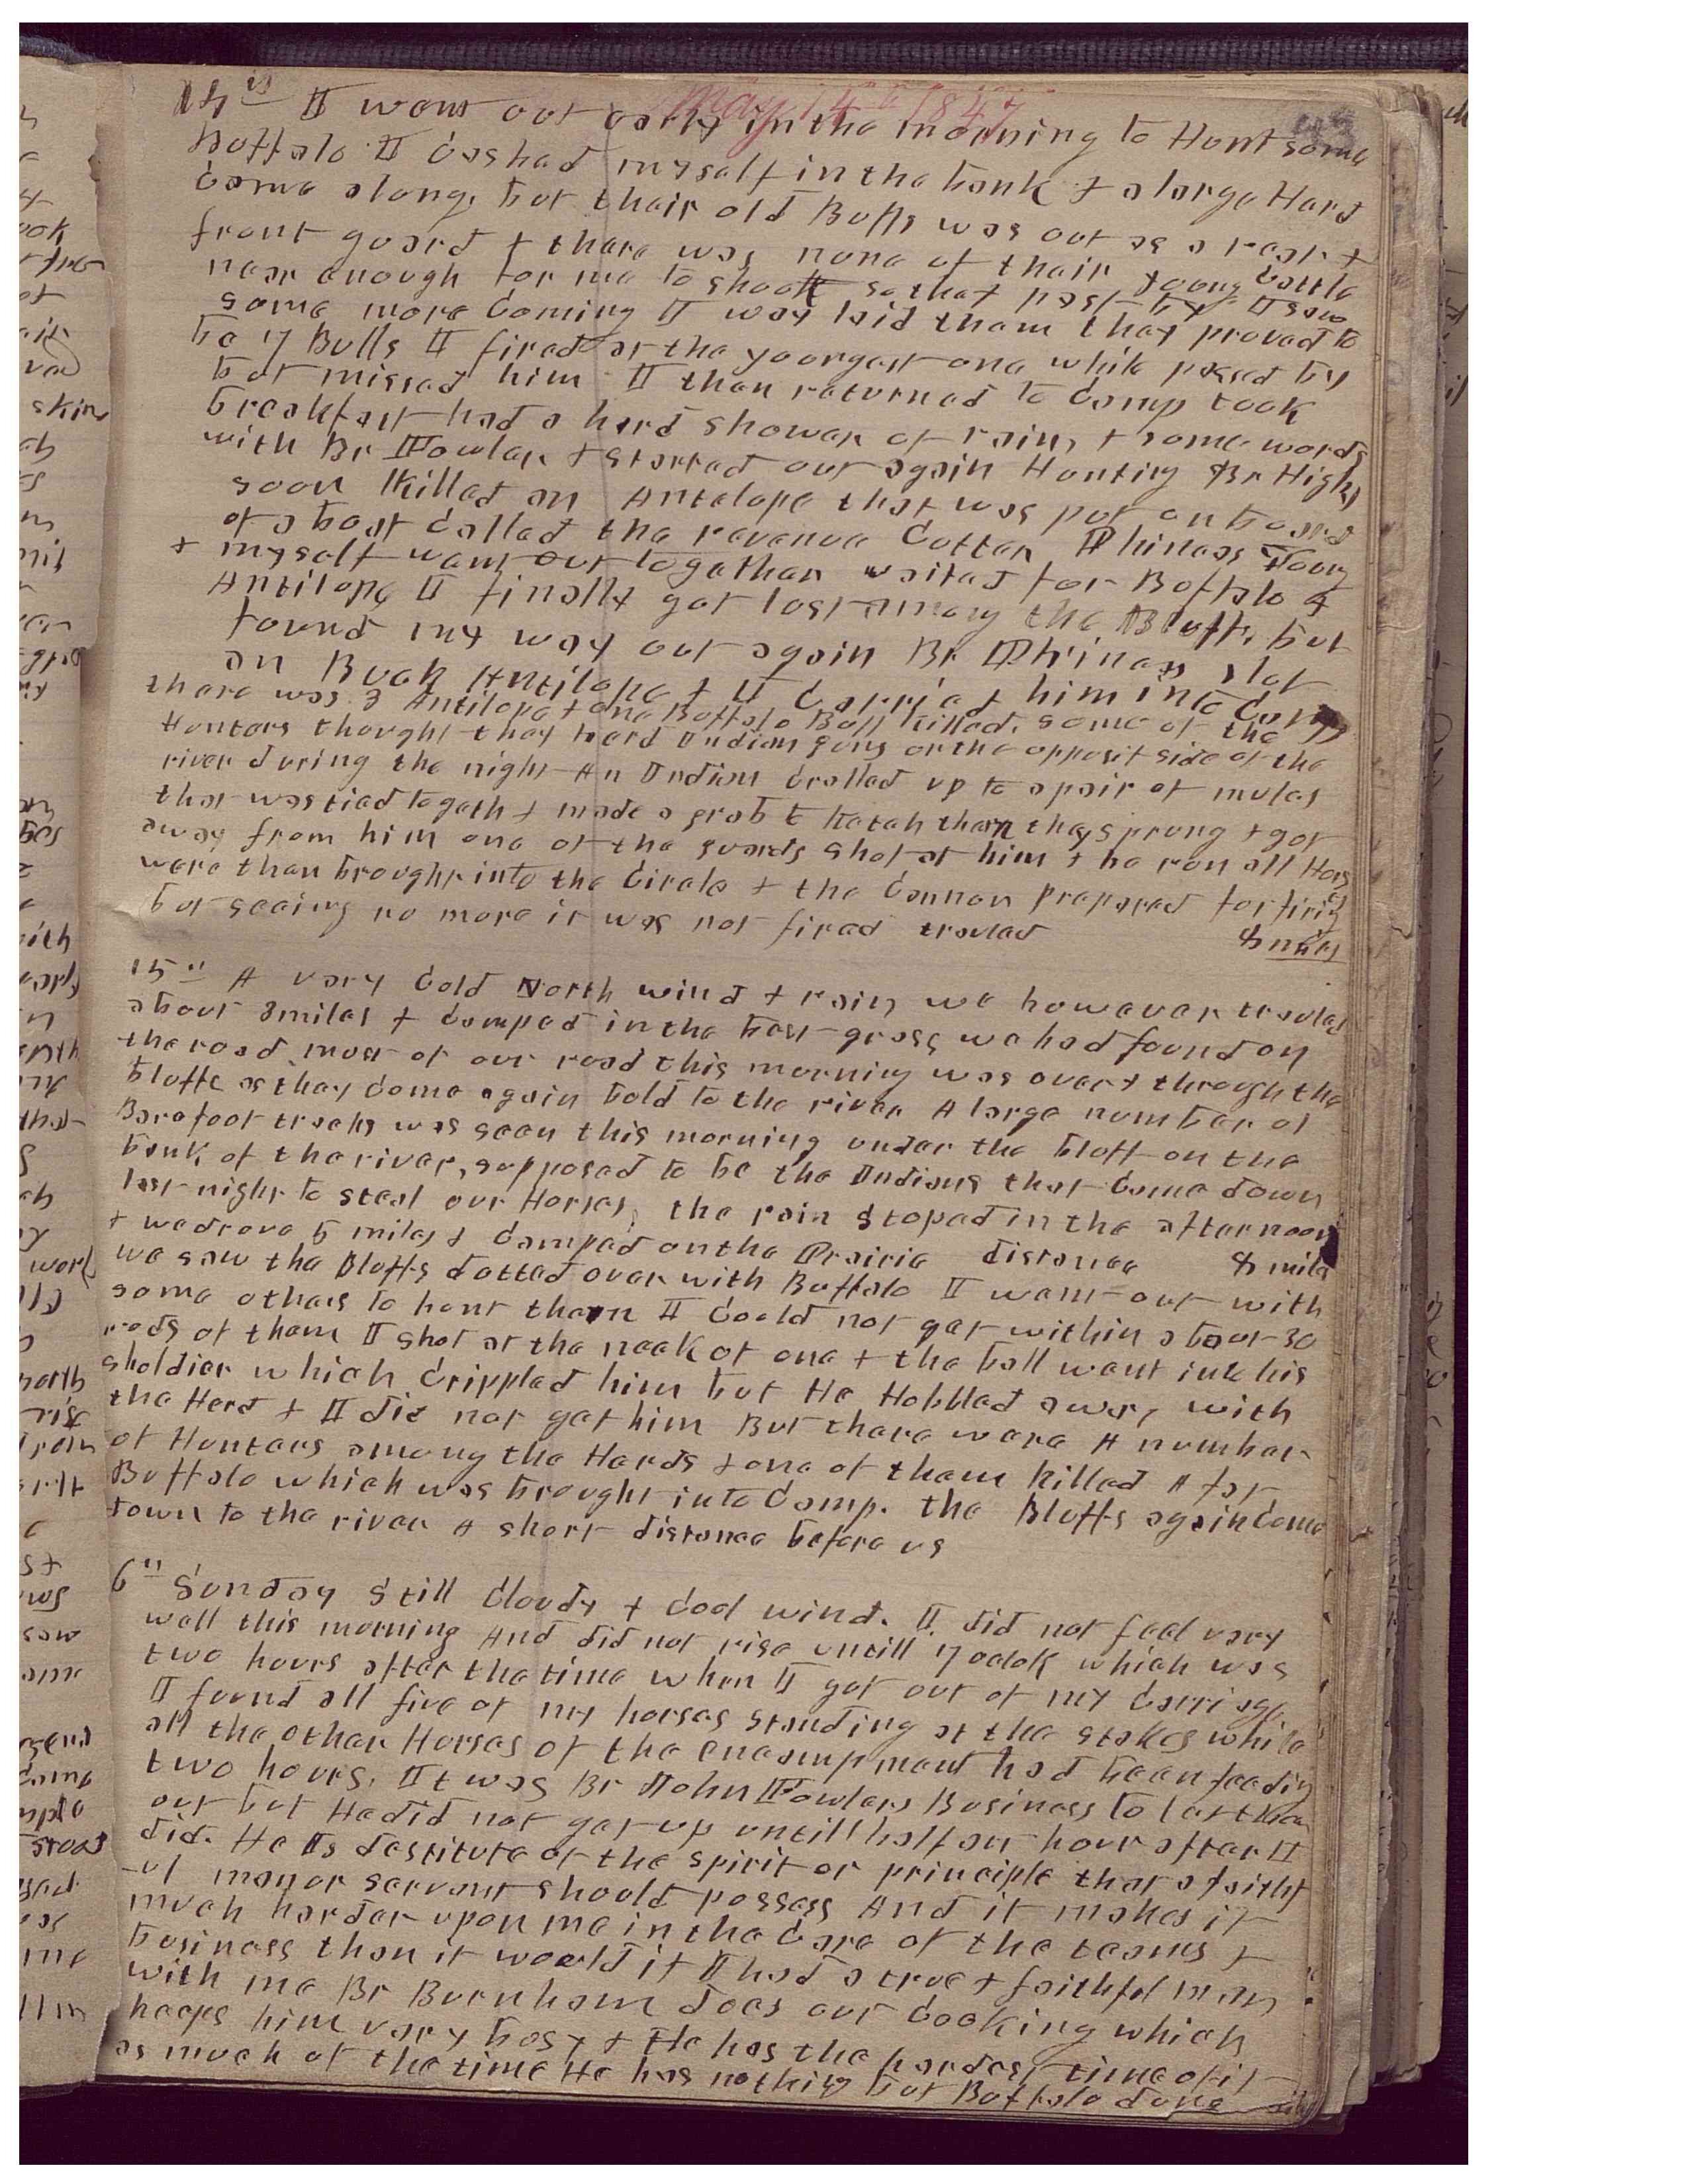 May 14th 1847
14th I went out early in the morning to Hunt some
Buffalo I cashed myself in the bank & a large Herd
came along, but their old Bulls was out as a rear &
front guard & there was none of their young cattle
near enough for me to shoot so that past by I saw
some more coming I way laid them they proved to
be 17 Bulls I fired at the youngest one while passed by
but missed him I then returned to Camp took
breakfast had a hard shower of rain, & some words
with Br Fowler & started out again Hunting Br Higby
soon killed an Antelope that was put on board
of a boat called the revenue Cutter Phinehas Young
& myself went out together waited for Buffalo &
Antilope I finally got lost among the Bluffs, but
found my way out again Br Phinas shot
an Buck Antilope & I carried him into camp
there was 3 Antilope & one Buffalo Bull killed, some of the
Hunters thought they heard Indian guns on the opposit side of the
river during the night An Indian cralled up to a pair of mules
that was tied togeth & made a grab to ketch them they sprung & got
away from him one of the guards shot at him & he ran all Hors
were then brought into the circle & the cannon prepared for firing
but seeing no more it was not fired traveled
8 miles
15th A vary cold North wind & rain, we however traveled
about 3 miles & camped in the best grass we had found on
the road most of our road this morning was over & through the
bluffs as they come again bold to the river A large number of
Barefoot tracks was seen this morning under the bluff on the
bank, of the river, supposed to be the Indians that came down
last night to steal our Horses, the rain stoped in the afternoon
& we drove 5 miles & camped on the Prairie distance 8 mile
we saw the Bluffs dotted over with Buffalo I went out with
some others to hunt them I could not get within about 30
rods of them I shot at the neck of one & the ball went into his
sholdier which crippled him but He Hobbled away with
the Herd & I did not get him But there were A number
of Hunters among the Herds & one of them killed A fat
Buffalo which was brought into Camp. the Bluffs again came
down to the river A short distance before us
6th Sunday Still Cloudy & Cool wind. I did not feel vary
well this morning And did not rise untill 7 oclok which was
two hours after the time when I got out of my carriage
I found all five of my horses standing at the stakes while
all the other Horses of the encampment had been feeding
two hours. It was Br John Fowlers Business to let them
out but He did not get up untill half an hour after I
did. He Is destitute of the spirit or principle that a faithf
-ul man or servant should possess And it makes it
much harder upon me in the care of the teams &
business than it would if I had a true & faithful man
with me Br Burnham does our Cooking which
keeps him vary busy & He has the hardest time of it
as much of the time He has nothing but Buffalo dung